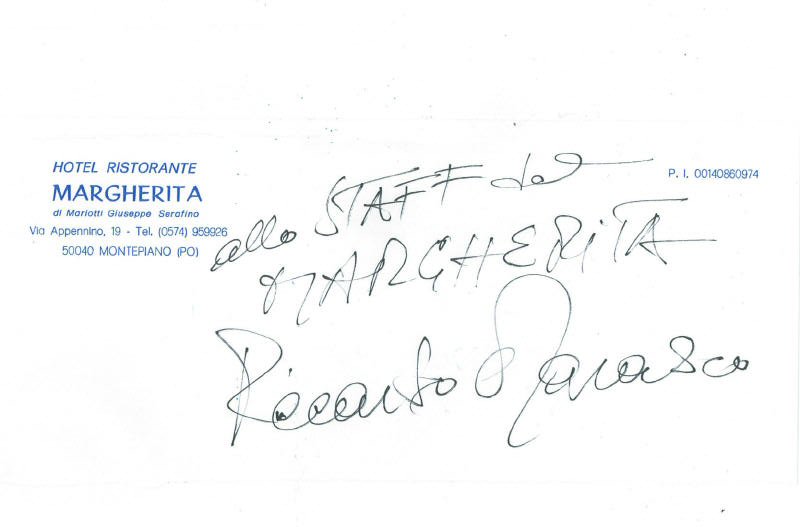 HOTEL RISTORANTE
MARGHERITA
di Mariotti Giuseppe Serafino
Via Appennino, 19 - Tel. (0574) 959926
50040 MONTEPIANO (PO)
P. I. 00140860974
allo STAFF del
MARGHERITA
Riccardo Marasco